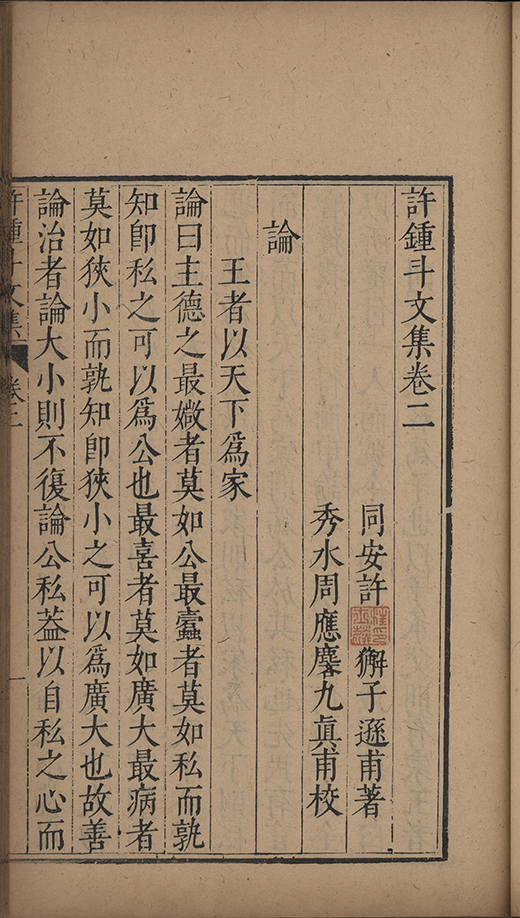 許鍾斗文集卷二
同安許獬子遜甫著
秀水周應麐九眞甫校
論
王者以天下爲家
論曰主德之最媺者莫如公最蠹者莫如私而孰
知卽私之可以爲公也最喜者莫如廣大最病者
莫如狹小而孰知卽狹小之可以爲廣大也故善
論治者論大小則不復論公私葢以自私之心而
許鍾斗文集 卷二 一